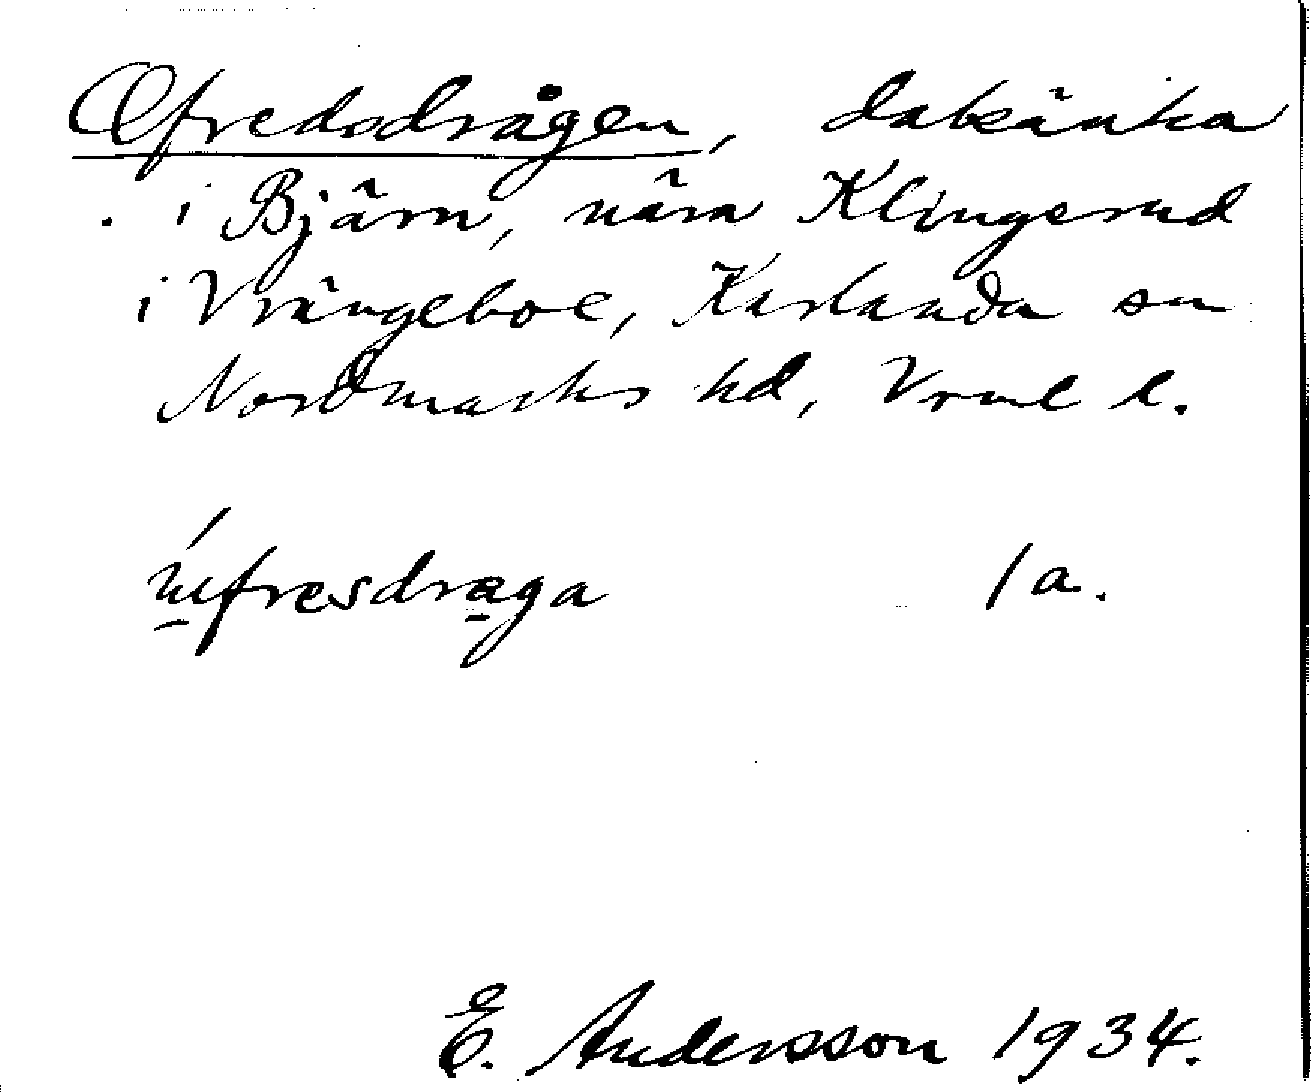 Ofredsdrågen, dalsänka
i Bjärn, nära Klingerud
i Vrängeboe, Karlanda sn
Nordmarks hd, Vrml l.
úfresdraga 1a.
E. Andersson 1934.